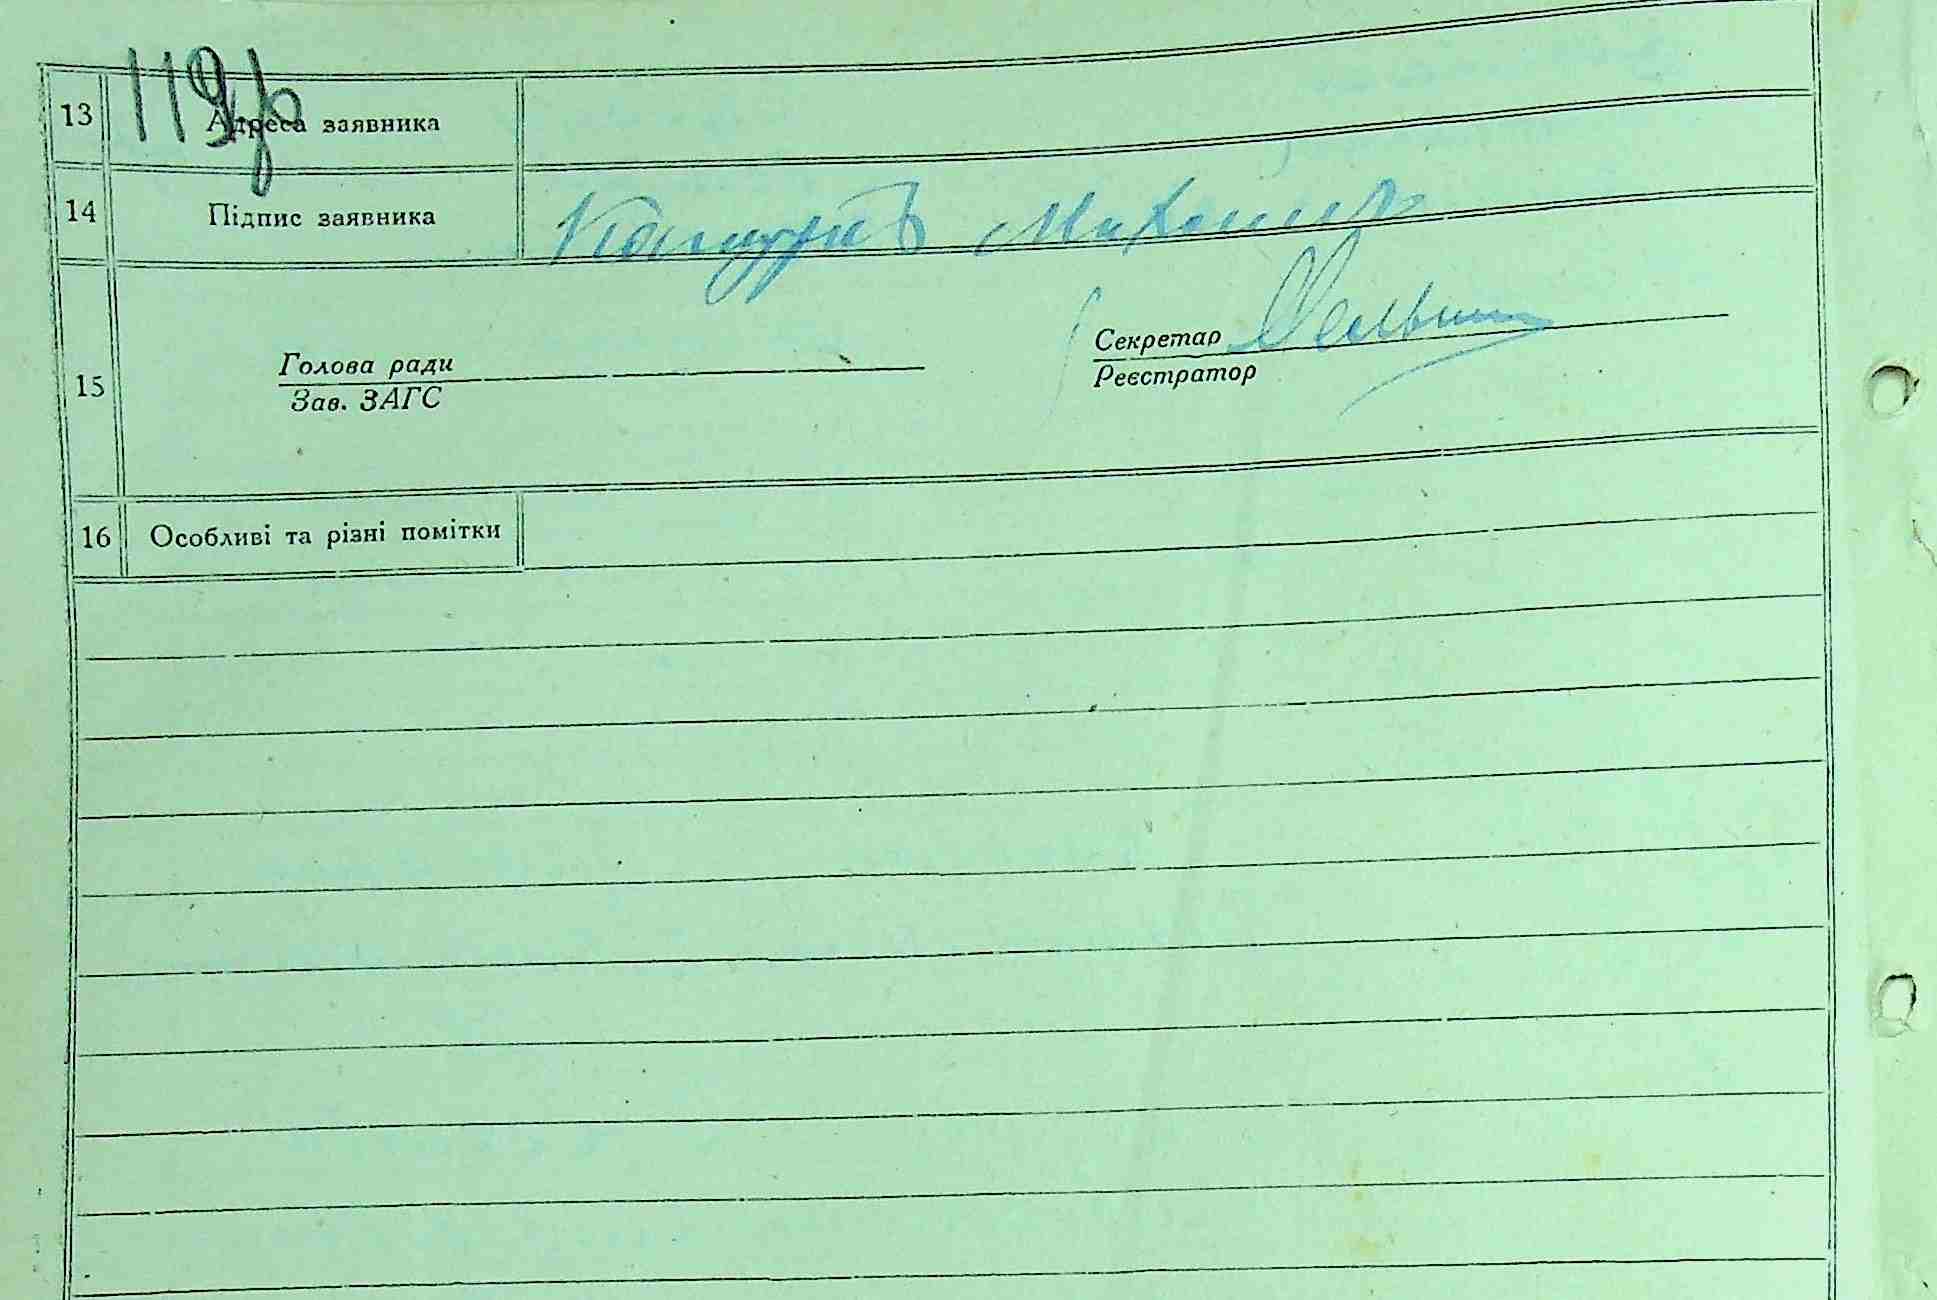 119
13 Адреса заявника
14 Підпис заявника
Секретар
Голова ради
Реєстратор
15
Зав. ЗАГС
16 Особливі та різні помітки